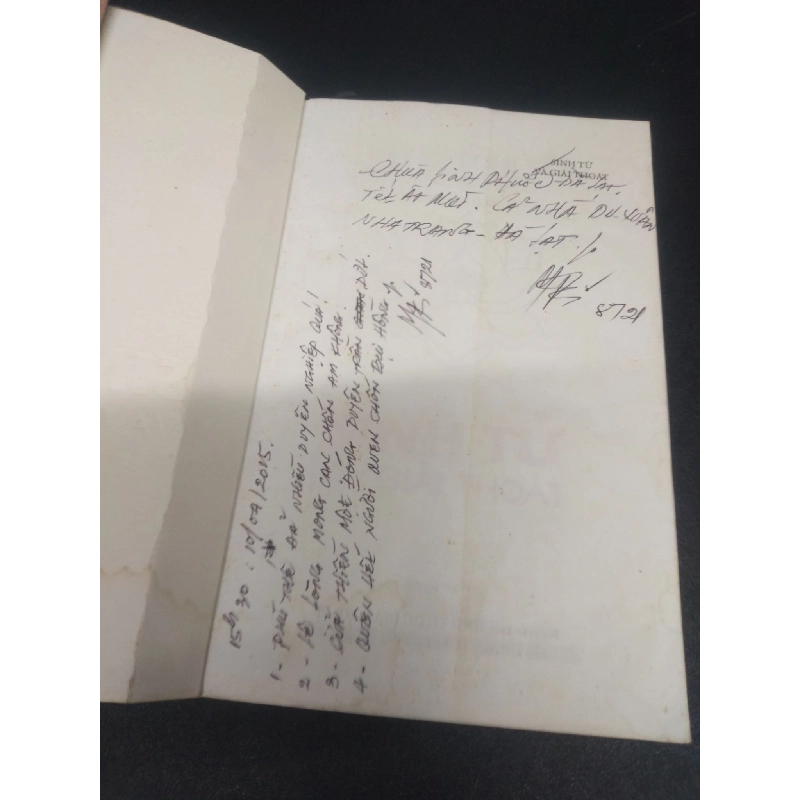 SINH TỬ
VÀ GIẢI THOÁT
CHÙA LINH PHƯỚC - ĐÀ LẠT.
TẾT ẤT MÙI. CẢ NHÀ DU XUÂN
NHA TRANG - ĐÀ LẠT.
8721
15h 30 : 10/04/2015.
1 - PHÙ THẾ ĐÃ NHIỀU DUYÊN NGHIỆP QUÁ!
2 - LỆ LÒNG MONG CẠN CHỐN AM KHÔNG.
3 - CỬA THIỀN MỘT ĐÓNG DUYÊN TRẦN DỨT.
4 - QUÊN HẾT NGƯỜI QUEN CHỐN BỤI HỒNG
8721